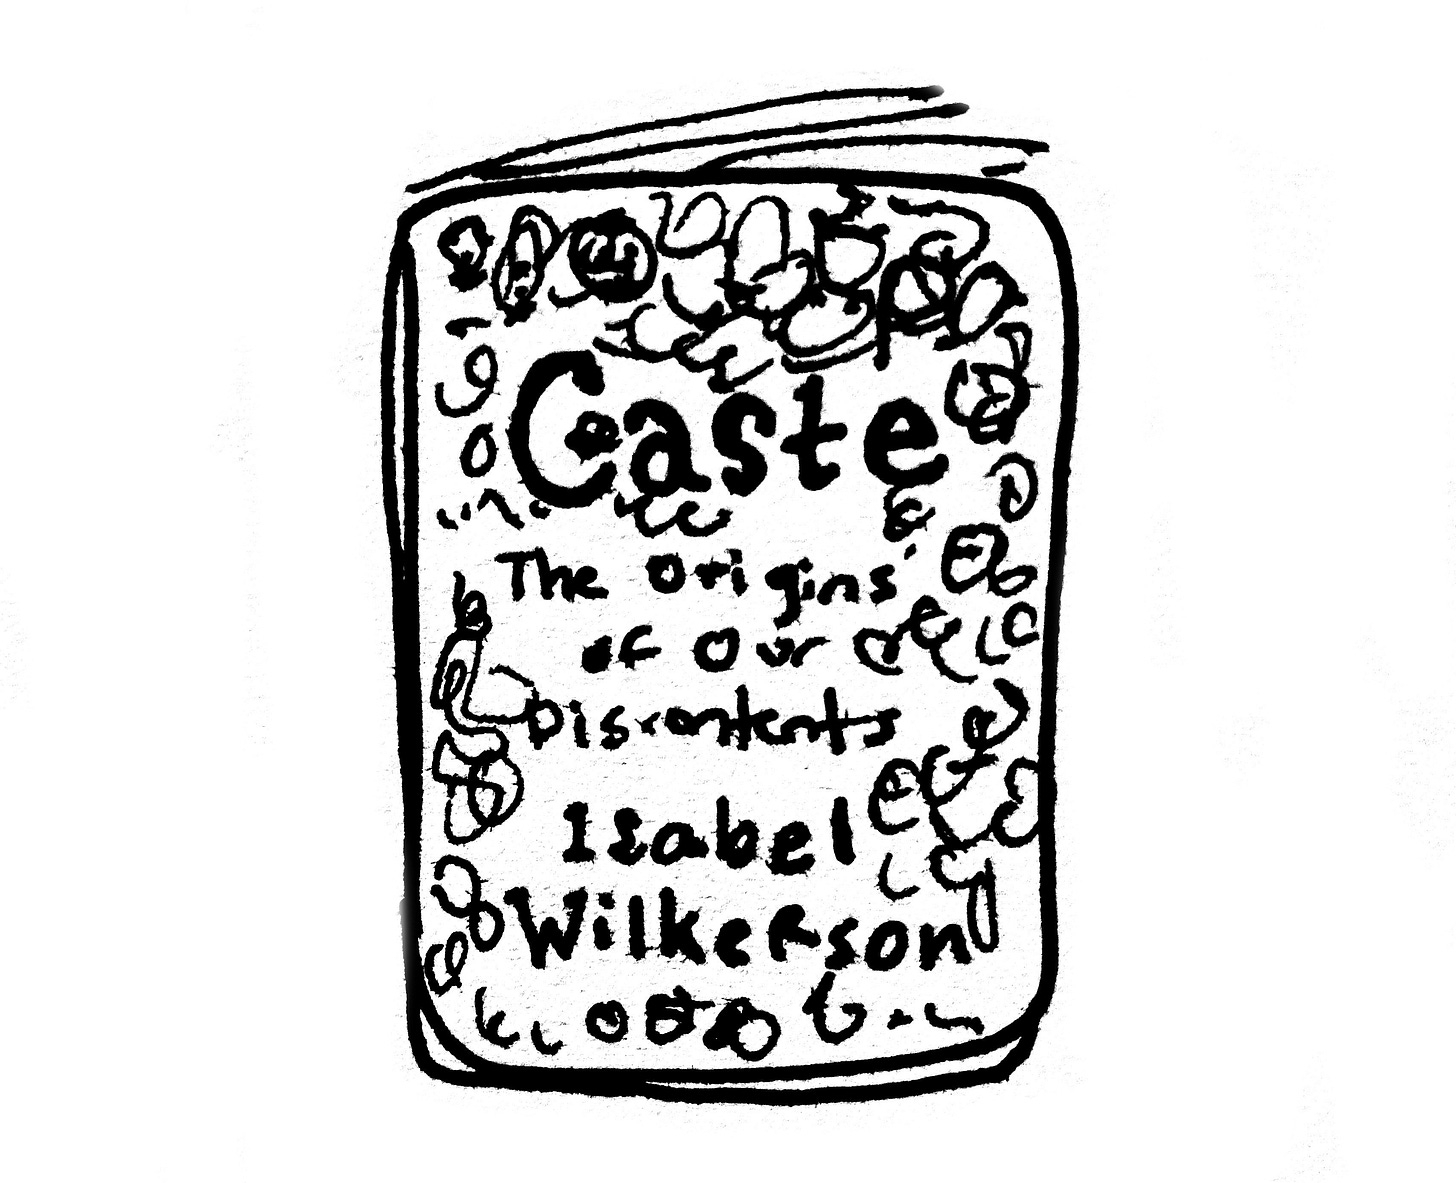 Caste
The Origins
of Our
Discontents
Isabel
Wilkerson